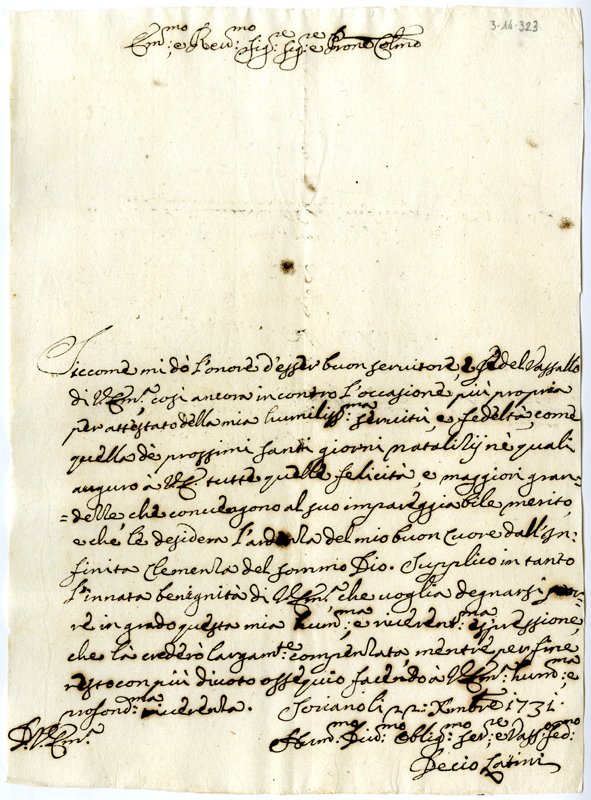 3-14-323
Em.mo e Rev.mo Sig.re Sig.re e Prone Colmo
Siccome mi dò l'onore d'esser buon servitore, e fedel Vassallo
di V. Em.a così ancora incontro l'occasione più propria
per attestato della mia humiliss.ma servitù, e fedeltà, come
quella dè prossimi santi giorni natalizij nè quali
auguro à V.E. tutte quelle felicità, e maggiori gran=
=dezze, che convengono al suo impareggiabile merito,
e che le desidera l'ardenza del mio buon Cuore dall'In-
finita Clemenza del sommo Dio. Supplico in tanto
l'innata benignità di V. Em.a che voglia degnarsi
re in grado questa mia hum.ma, e riverent.ma espressione,
che là crederò largam.te compensata, mentre per fine
resto con più divoto ossequio facendo à V. Em.a hum.ma, e
profond.ma riverenza. Soriano li 22: Xmbre 1731
D. V. Em.a
Hum.mo Div.mo Oblig.mo Ser.re e Vass. fed.mo
Decio Latini